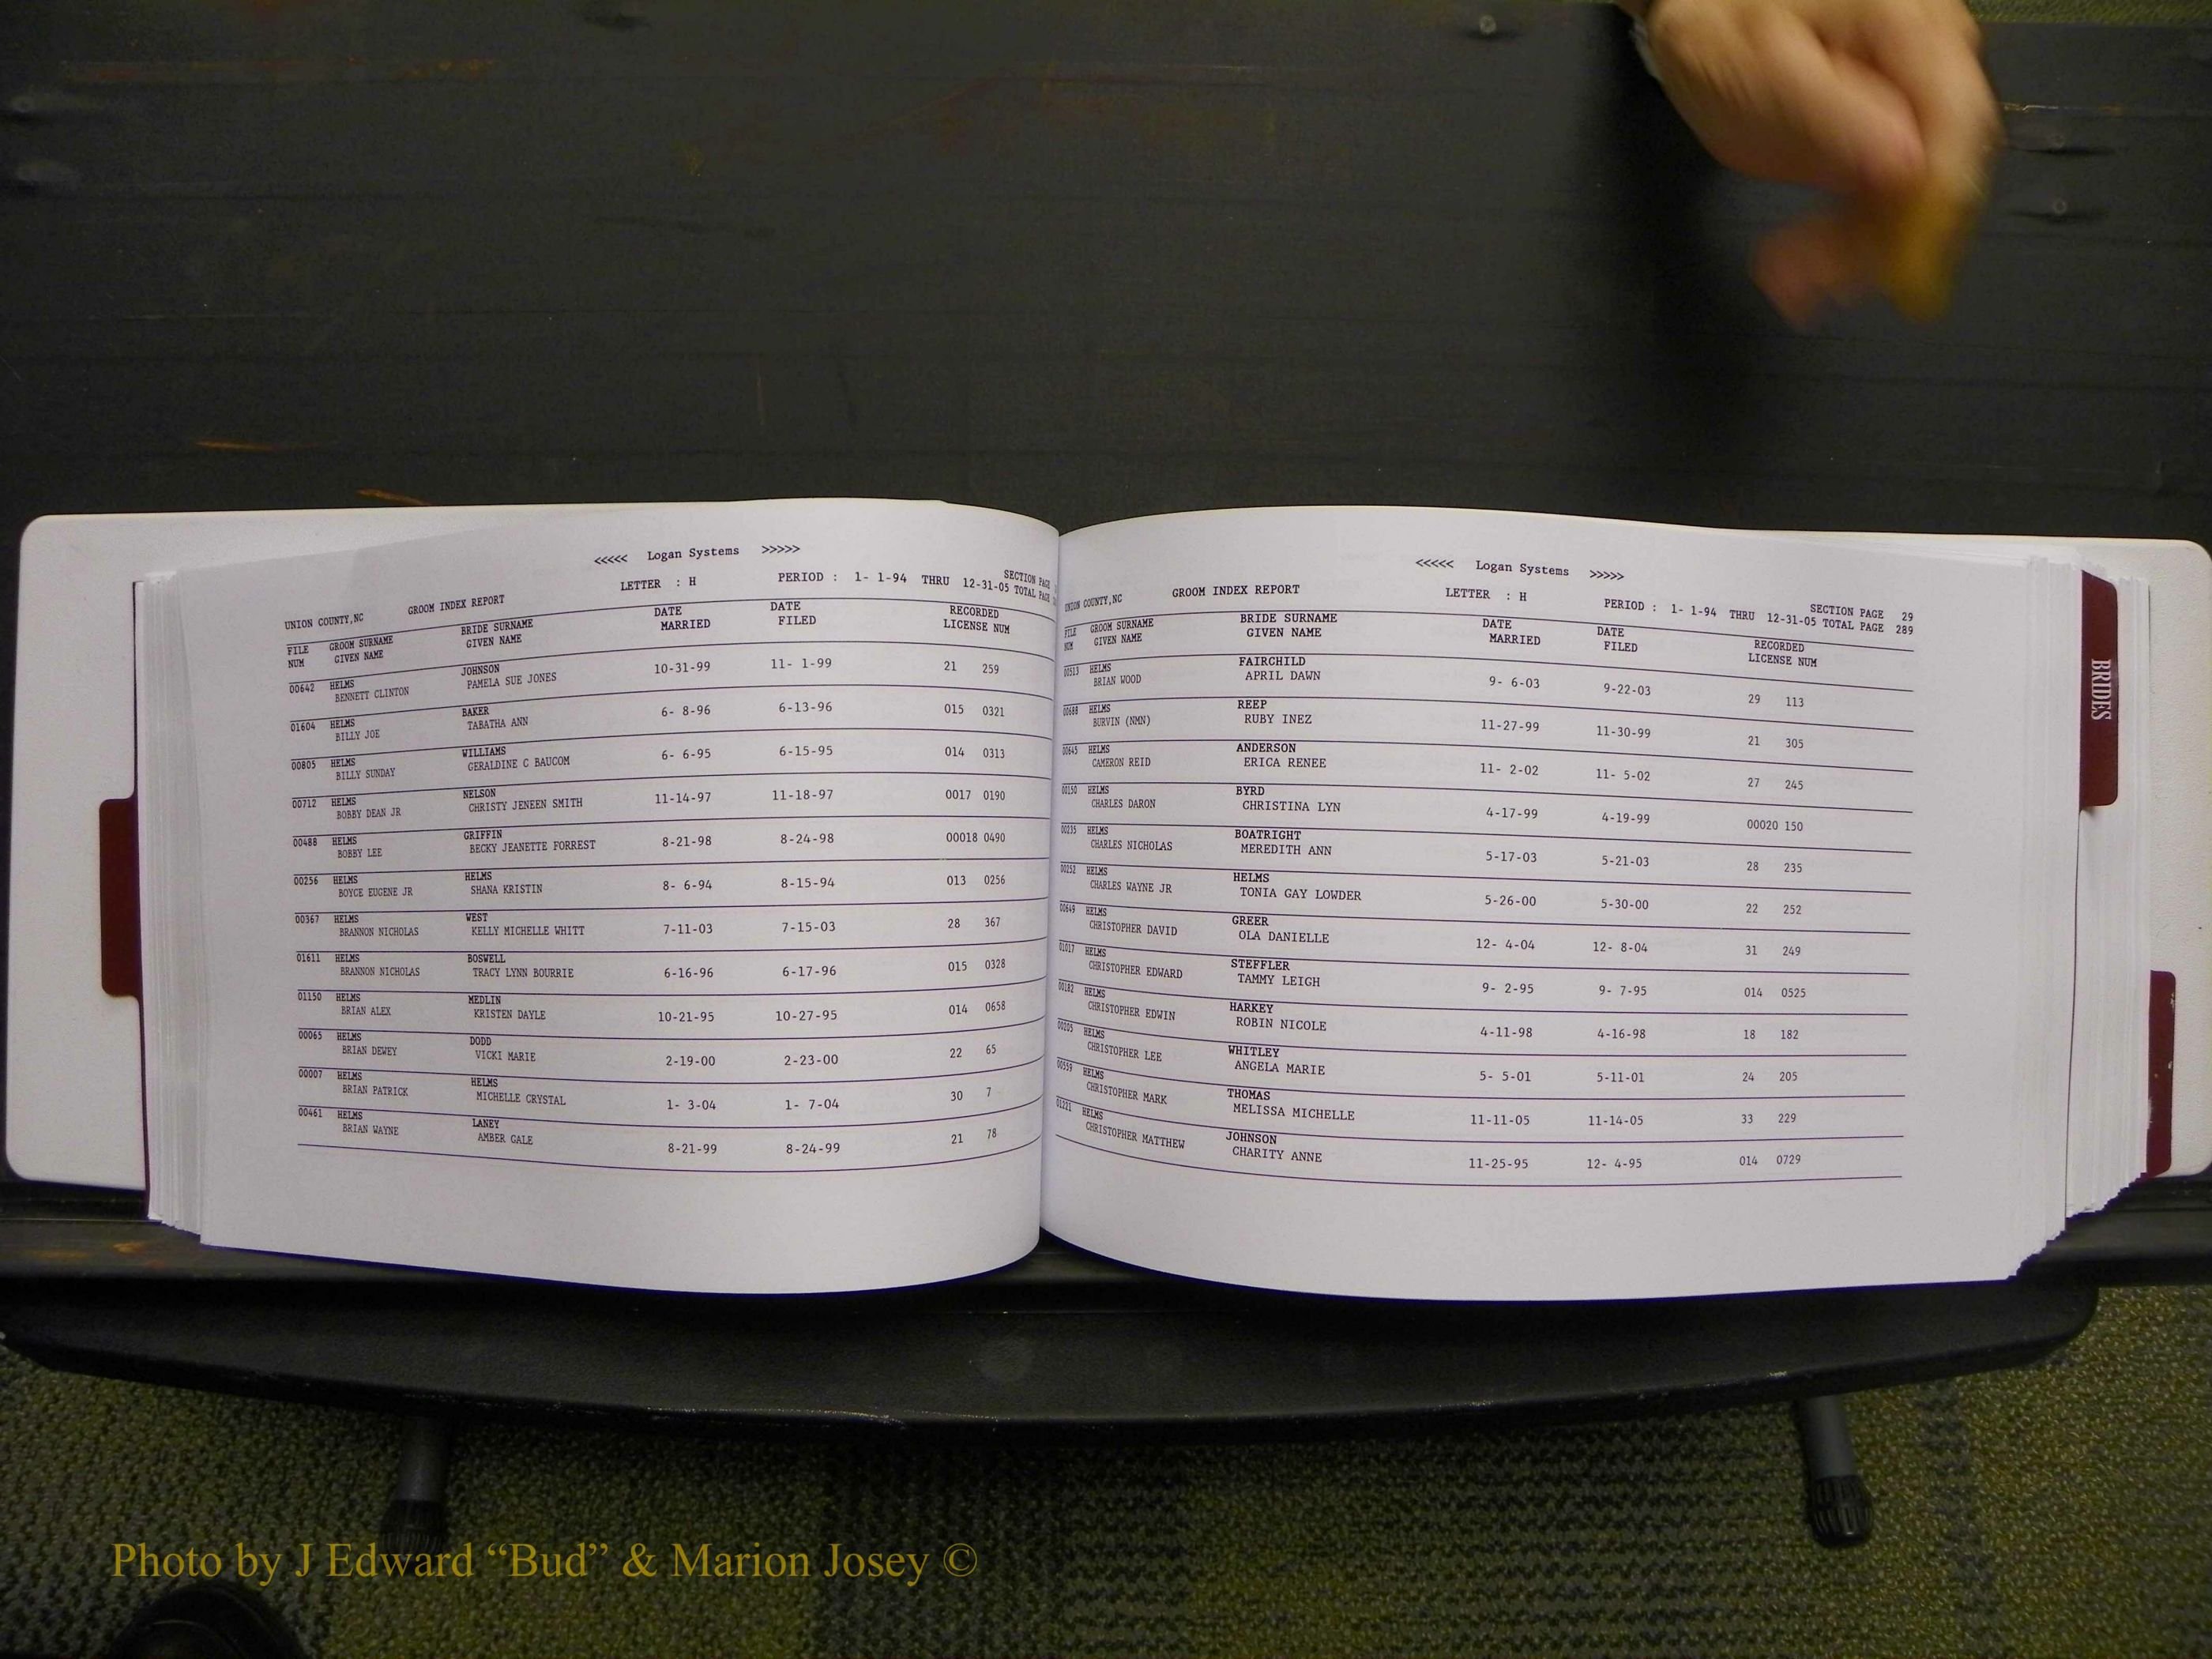 <<<<< Logan Systems >>>>>
UNION COUNTY,NC GROOM INDEX REPORT LETTER : H PERIOD : 1- 1-94 THRU 12-31-05 SECTION PAGE
TOTAL PAGE
FILE GROOM SURNAME BRIDE SURNAME DATE DATE RECORDED
NUM GIVEN NAME GIVEN NAME MARRIED FILED LICENSE NUM
00642 HELMS JOHNSON 10-31-99 11- 1-99 21 259
BENNETT CLINTON PAMELA SUE JONES
01604 HELMS BAKER 6- 8-96 6-13-96 015 0321
BILLY JOE TABATHA ANN
00805 HELMS WILLIAMS 6- 6-95 6-15-95 014 0313
BILLY SUNDAY GERALDINE C BAUCOM
00712 HELMS NELSON 11-14-97 11-18-97 0017 0190
BOBBY DEAN JR CHRISTY JENEEN SMITH
00488 HELMS GRIFFIN 8-21-98 8-24-98 00018 0490
BOBBY LEE BECKY JEANETTE FORREST
00256 HELMS HELMS 8- 6-94 8-15-94 013 0256
BOYCE EUGENE JR SHANA KRISTIN
00367 HELMS WEST 7-11-03 7-15-03 28 367
BRANNON NICHOLAS KELLY MICHELLE WHITT
01611 HELMS BOSWELL 6-16-96 6-17-96 015 0328
BRANNON NICHOLAS TRACY LYNN BOURRIE
01150 HELMS MEDLIN 10-21-95 10-27-95 014 0658
BRIAN ALEX KRISTEN DAYLE
00065 HELMS DODD 2-19-00 2-23-00 22 65
BRIAN DEWEY VICKI MARIE
00007 HELMS HELMS 1- 3-04 1- 7-04 30 7
BRIAN PATRICK MICHELLE CRYSTAL
00461 HELMS LANEY 8-21-99 8-24-99 21 78
BRIAN WAYNE AMBER GALE
<<<<< Logan Systems >>>>>
UNION COUNTY,NC GROOM INDEX REPORT LETTER : H PERIOD : 1- 1-94 THRU 12-31-05 SECTION PAGE 29
TOTAL PAGE 289
FILE GROOM SURNAME BRIDE SURNAME DATE DATE RECORDED
NUM GIVEN NAME GIVEN NAME MARRIED FILED LICENSE NUM
00513 HELMS FAIRCHILD 9- 6-03 9-22-03 29 113
BRIAN WOOD APRIL DAWN
00688 HELMS REEP 11-27-99 11-30-99 21 305
BURVIN (NMN) RUBY INEZ
00645 HELMS ANDERSON 11- 2-02 11- 5-02 27 245
CAMERON REID ERICA RENEE
00150 HELMS BYRD 4-17-99 4-19-99 00020 150
CHARLES DARON CHRISTINA LYN
00235 HELMS BOATRIGHT 5-17-03 5-21-03 28 235
CHARLES NICHOLAS MEREDITH ANN
00252 HELMS HELMS 5-26-00 5-30-00 22 252
CHARLES WAYNE JR TONIA GAY LOWDER
00649 HELMS GREER 12- 4-04 12- 8-04 31 249
CHRISTOPHER DAVID OLA DANIELLE
01017 HELMS STEFFLER 9- 2-95 9- 7-95 014 0525
CHRISTOPHER EDWARD TAMMY LEIGH
00182 HELMS HARKEY 4-11-98 4-16-98 18 182
CHRISTOPHER EDWIN ROBIN NICOLE
00205 HELMS WHITLEY 5- 5-01 5-11-01 24 205
CHRISTOPHER LEE ANGELA MARIE
00559 HELMS THOMAS 11-11-05 11-14-05 33 229
CHRISTOPHER MARK MELISSA MICHELLE
01221 HELMS JOHNSON 11-25-95 12- 4-95 014 0729
CHRISTOPHER MATTHEW CHARITY ANNE
BRIDES
Photo by J Edward “Bud” & Marion Josey ©